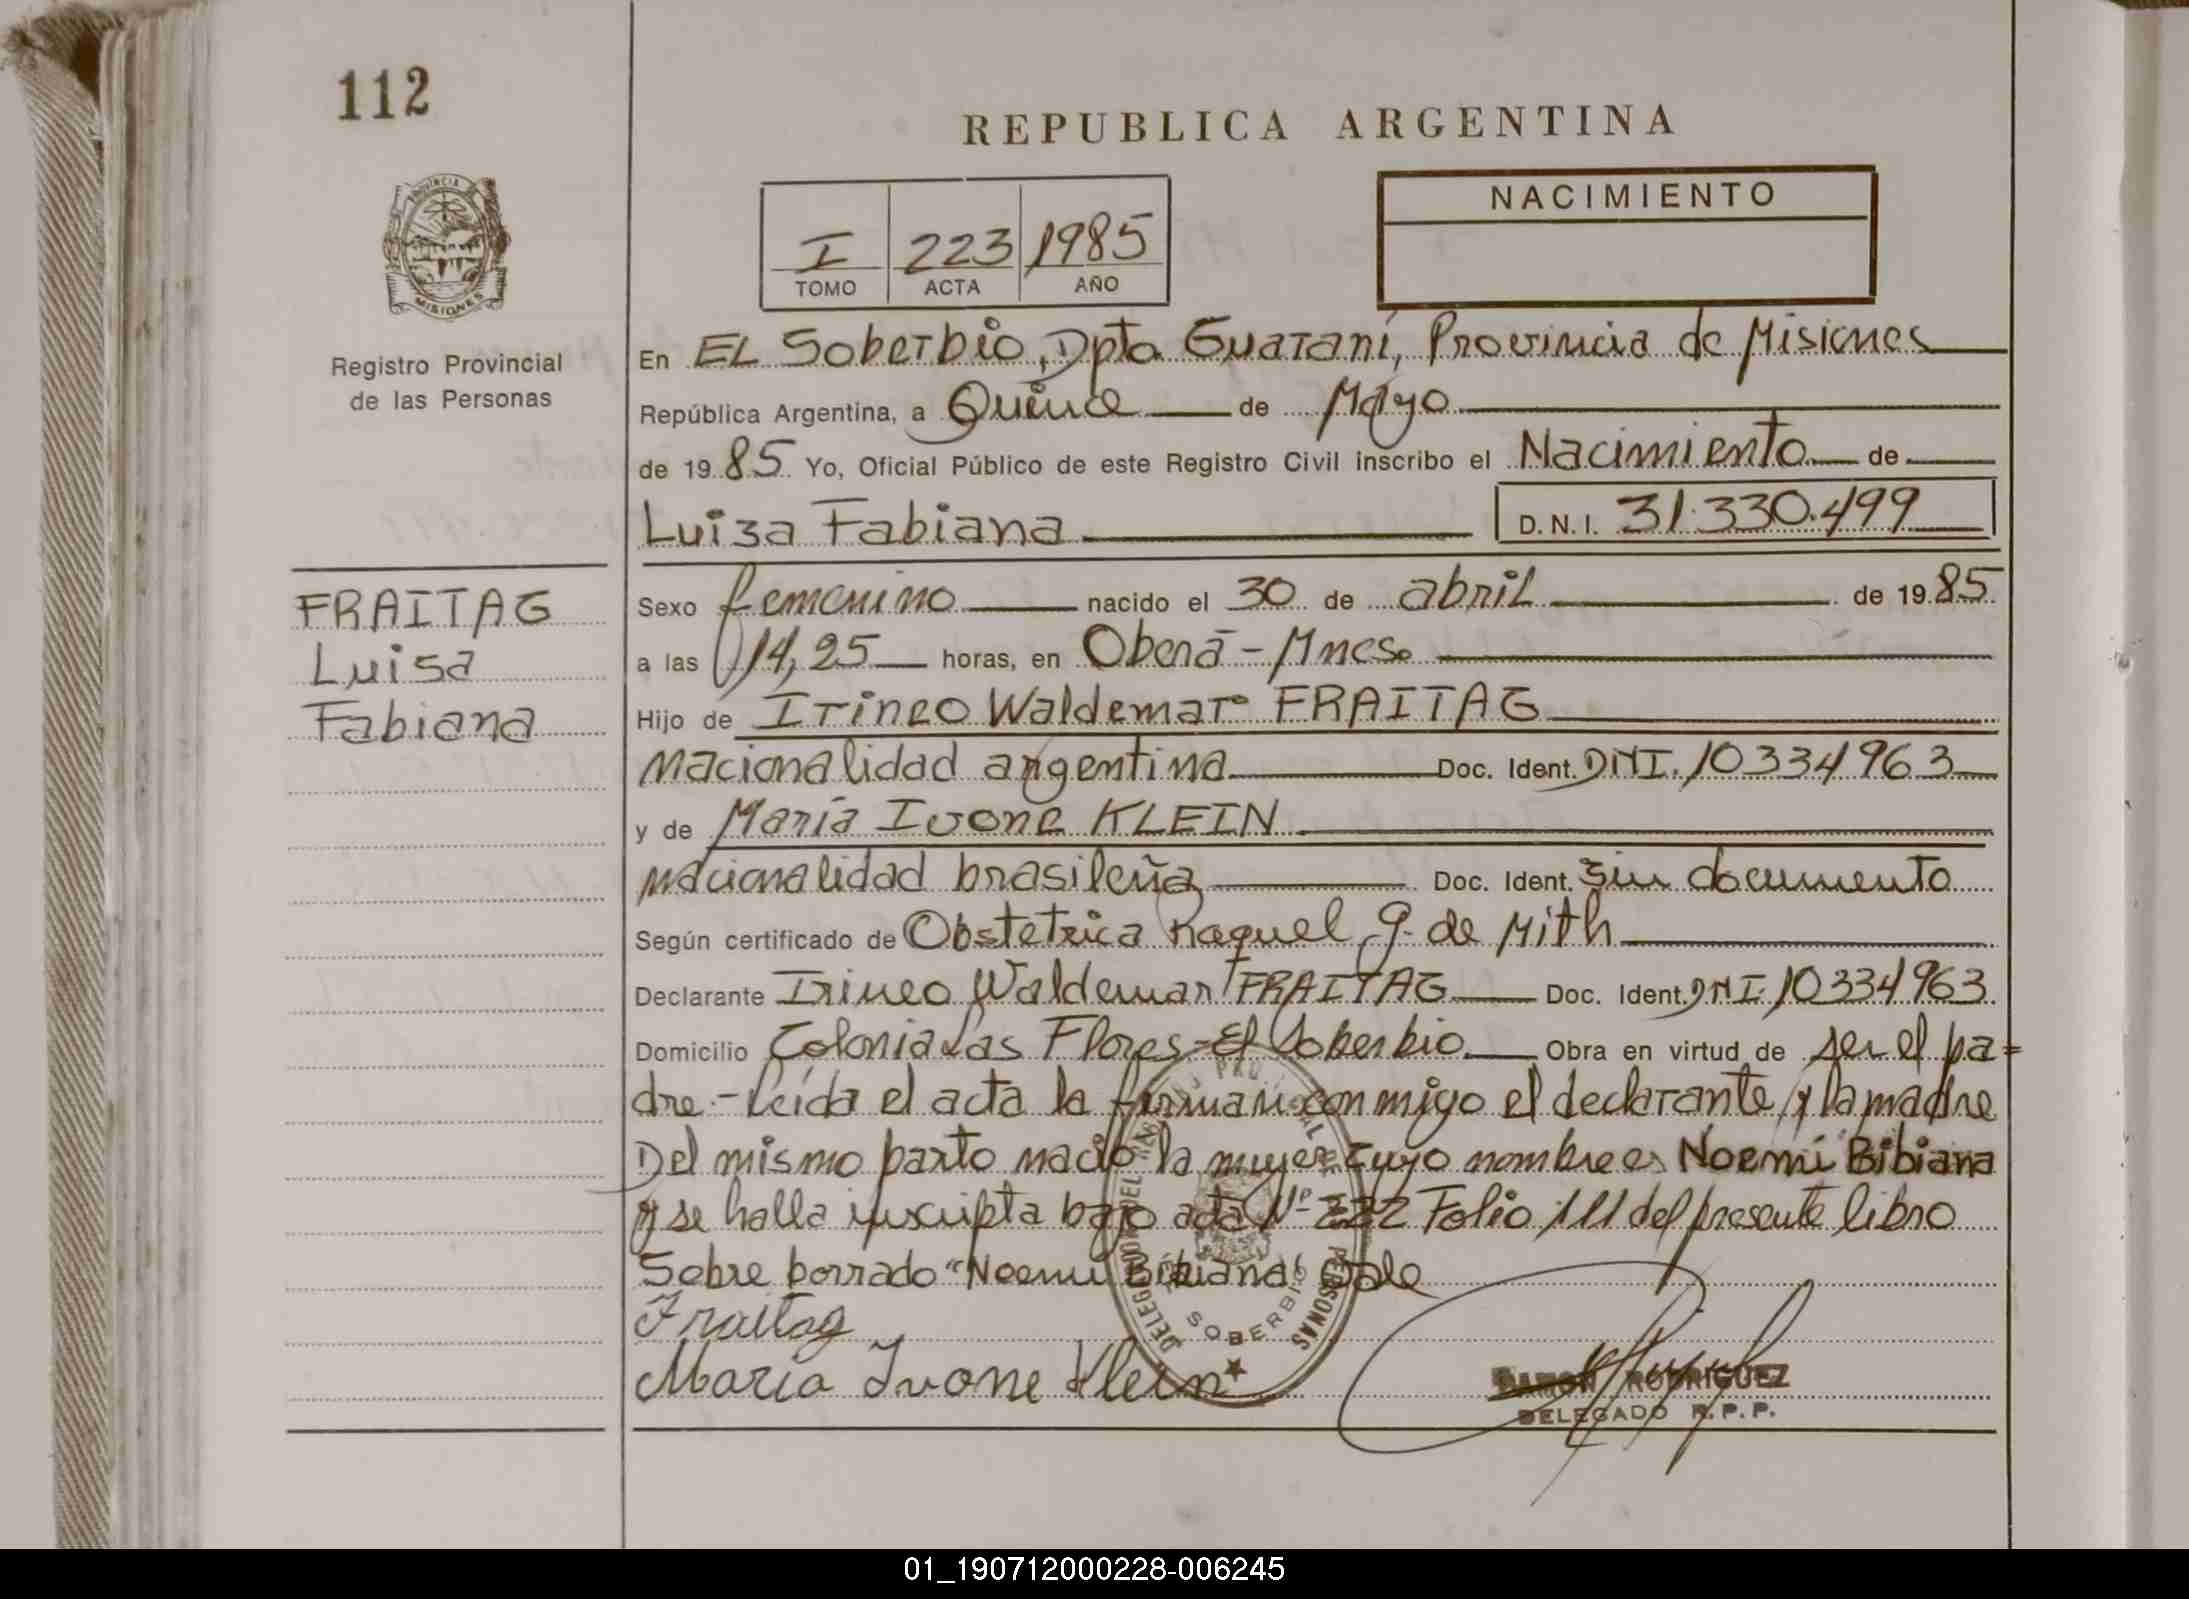 112
REPUBLICA ARGENTINA
PROVINCIA DE
MISIONES
Registro Provincial
de las Personas
I 223 1985
TOMO ACTA AÑO
NACIMIENTO
En EL Soberbio, Dpto Guaraní, Provincia de Misiones
República Argentina, a Quince de Mayo
de 1985 Yo, Oficial Público de este Registro Civil inscribo el Nacimiento de
Luiza Fabiana D.N.I. 31.330.499
FRAITAG
Luisa
Fabiana
Sexo femenino nacido el 30 de abril de 1985
a las 14,25 horas, en Oberá - Mnes.
Hijo de Irineo Waldemar FRAITAG
nacionalidad argentina Doc. Ident. DNI. 10334963
y de María Ivone KLEIN
nacionalidad brasileña Doc. Ident. sin documento
Según certificado de Obstetrica Raquel G. de Mith
Declarante Irineo Waldemar FRAITAG Doc. Ident. DNI. 10334963
Domicilio Colonia Las Flores - El Soberbio Obra en virtud de ser el pa=
dre.- Leída el acta la firman conmigo el declarante y la madre
Del mismo parto nació la mujer cuyo nombre es Noemi Bibiana
y se halla inscripta bajo acta Nº 222 Folio 111 del presente libro
Sobre borrado "Noemi Bibiana" Vale
Fraitag
Maria Ivone Klein
RAMON RODRIGUEZ
DELEGADO R.P.P.
SOBERBIO
PERSONAS
01_190712000228-006245